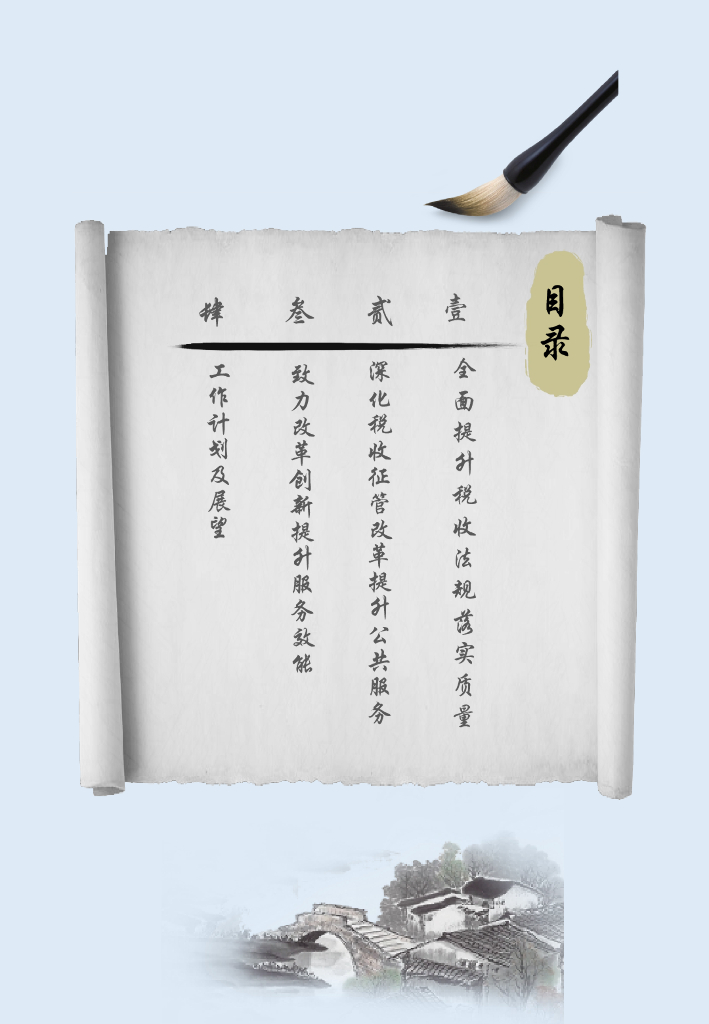 目录
壹
全面提升税收法规落实质量
贰
深化税收征管改革提升公共服务
叁
致力改革创新提升服务效能
肆
工作计划及展望